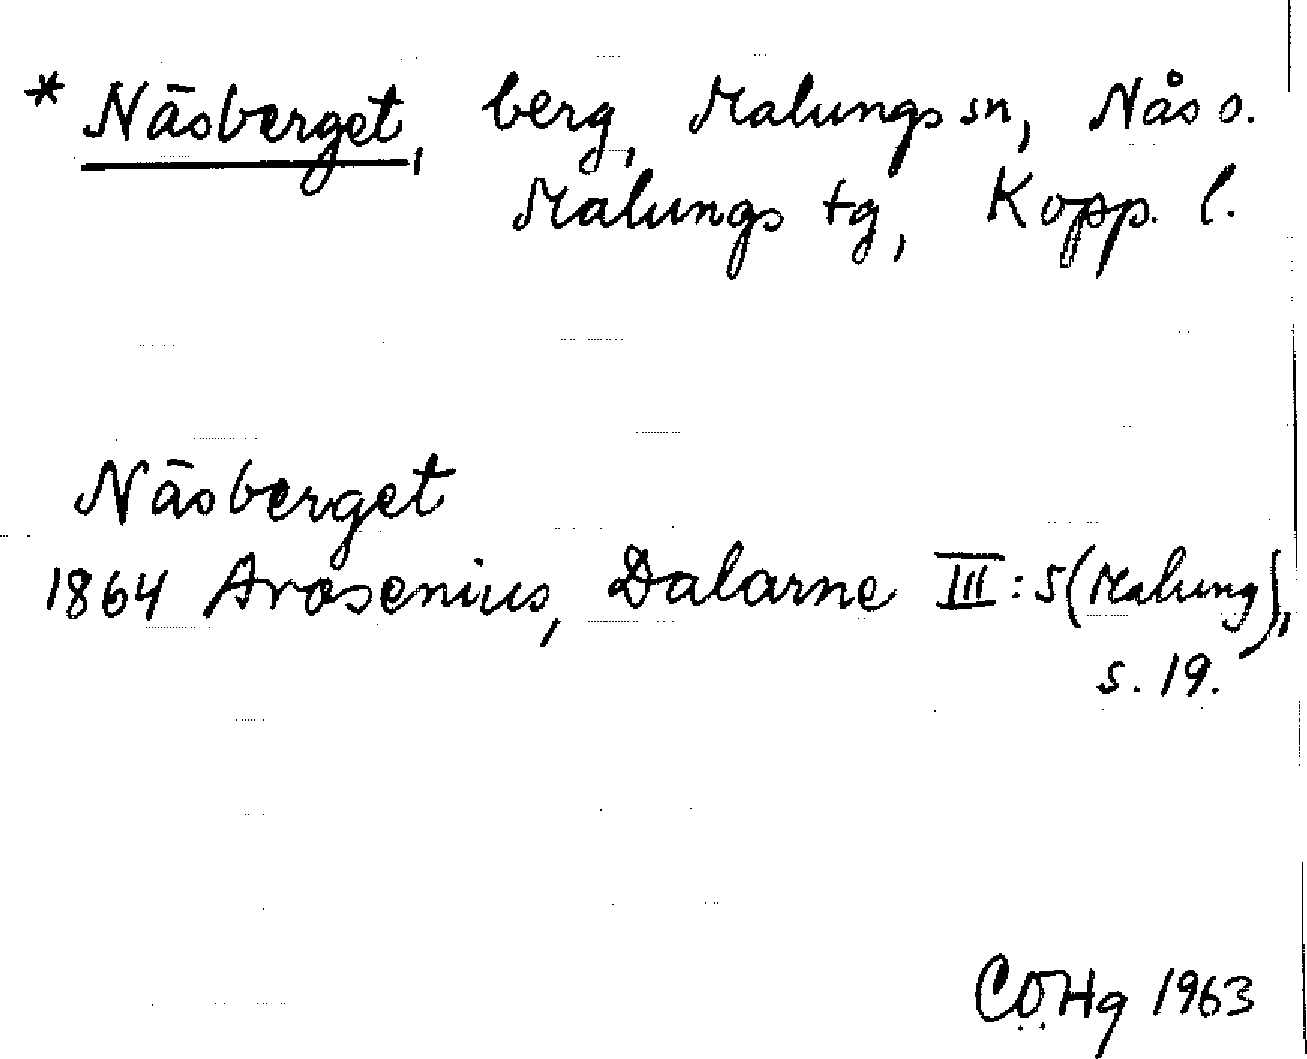 * Näsberget, berg, Malungs sn, Nås o.
Malungs tg, Kopp. l.
Näsberget
1864 Arosenius, Dalarne III:5 (Malung),
s. 19.
CÖHg 1963